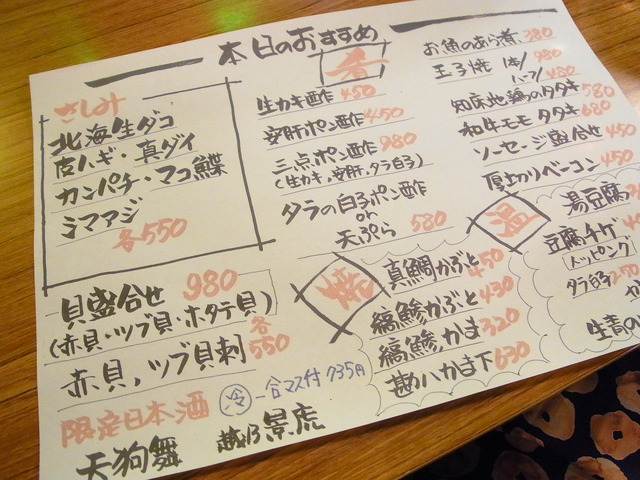 本日のおすすめ
さしみ
北海生ダコ
皮ハギ・真ダイ
カンパチ・マコ鰈
ミマアジ
各550
貝盛合せ 980
(赤貝・ツブ貝・ホタテ貝)
赤貝,ツブ貝刺 各550
限定日本酒 冷 一合マス付 735円
天狗舞 越乃景虎
肴
生カキ酢 450
安肝ポン酢 450
三点ポン酢 980
(生カキ,安肝,タラ白子)
タラの白子ポン酢
or
天ぷら 580
焼
真鯛かぶと 450
縞鯵かぶと 430
縞鯵かま 320
勘八カマ下 630
お魚のあら煮 380
玉子焼 1本/ 980
ハーフ/ 480
知床地鶏のタタキ 580
和牛モモタタキ 680
ソーセージ盛合せ 450
厚切りベーコン 450
温
湯豆腐
豆腐チゲ
トッピング
タラ白子 250
生青の